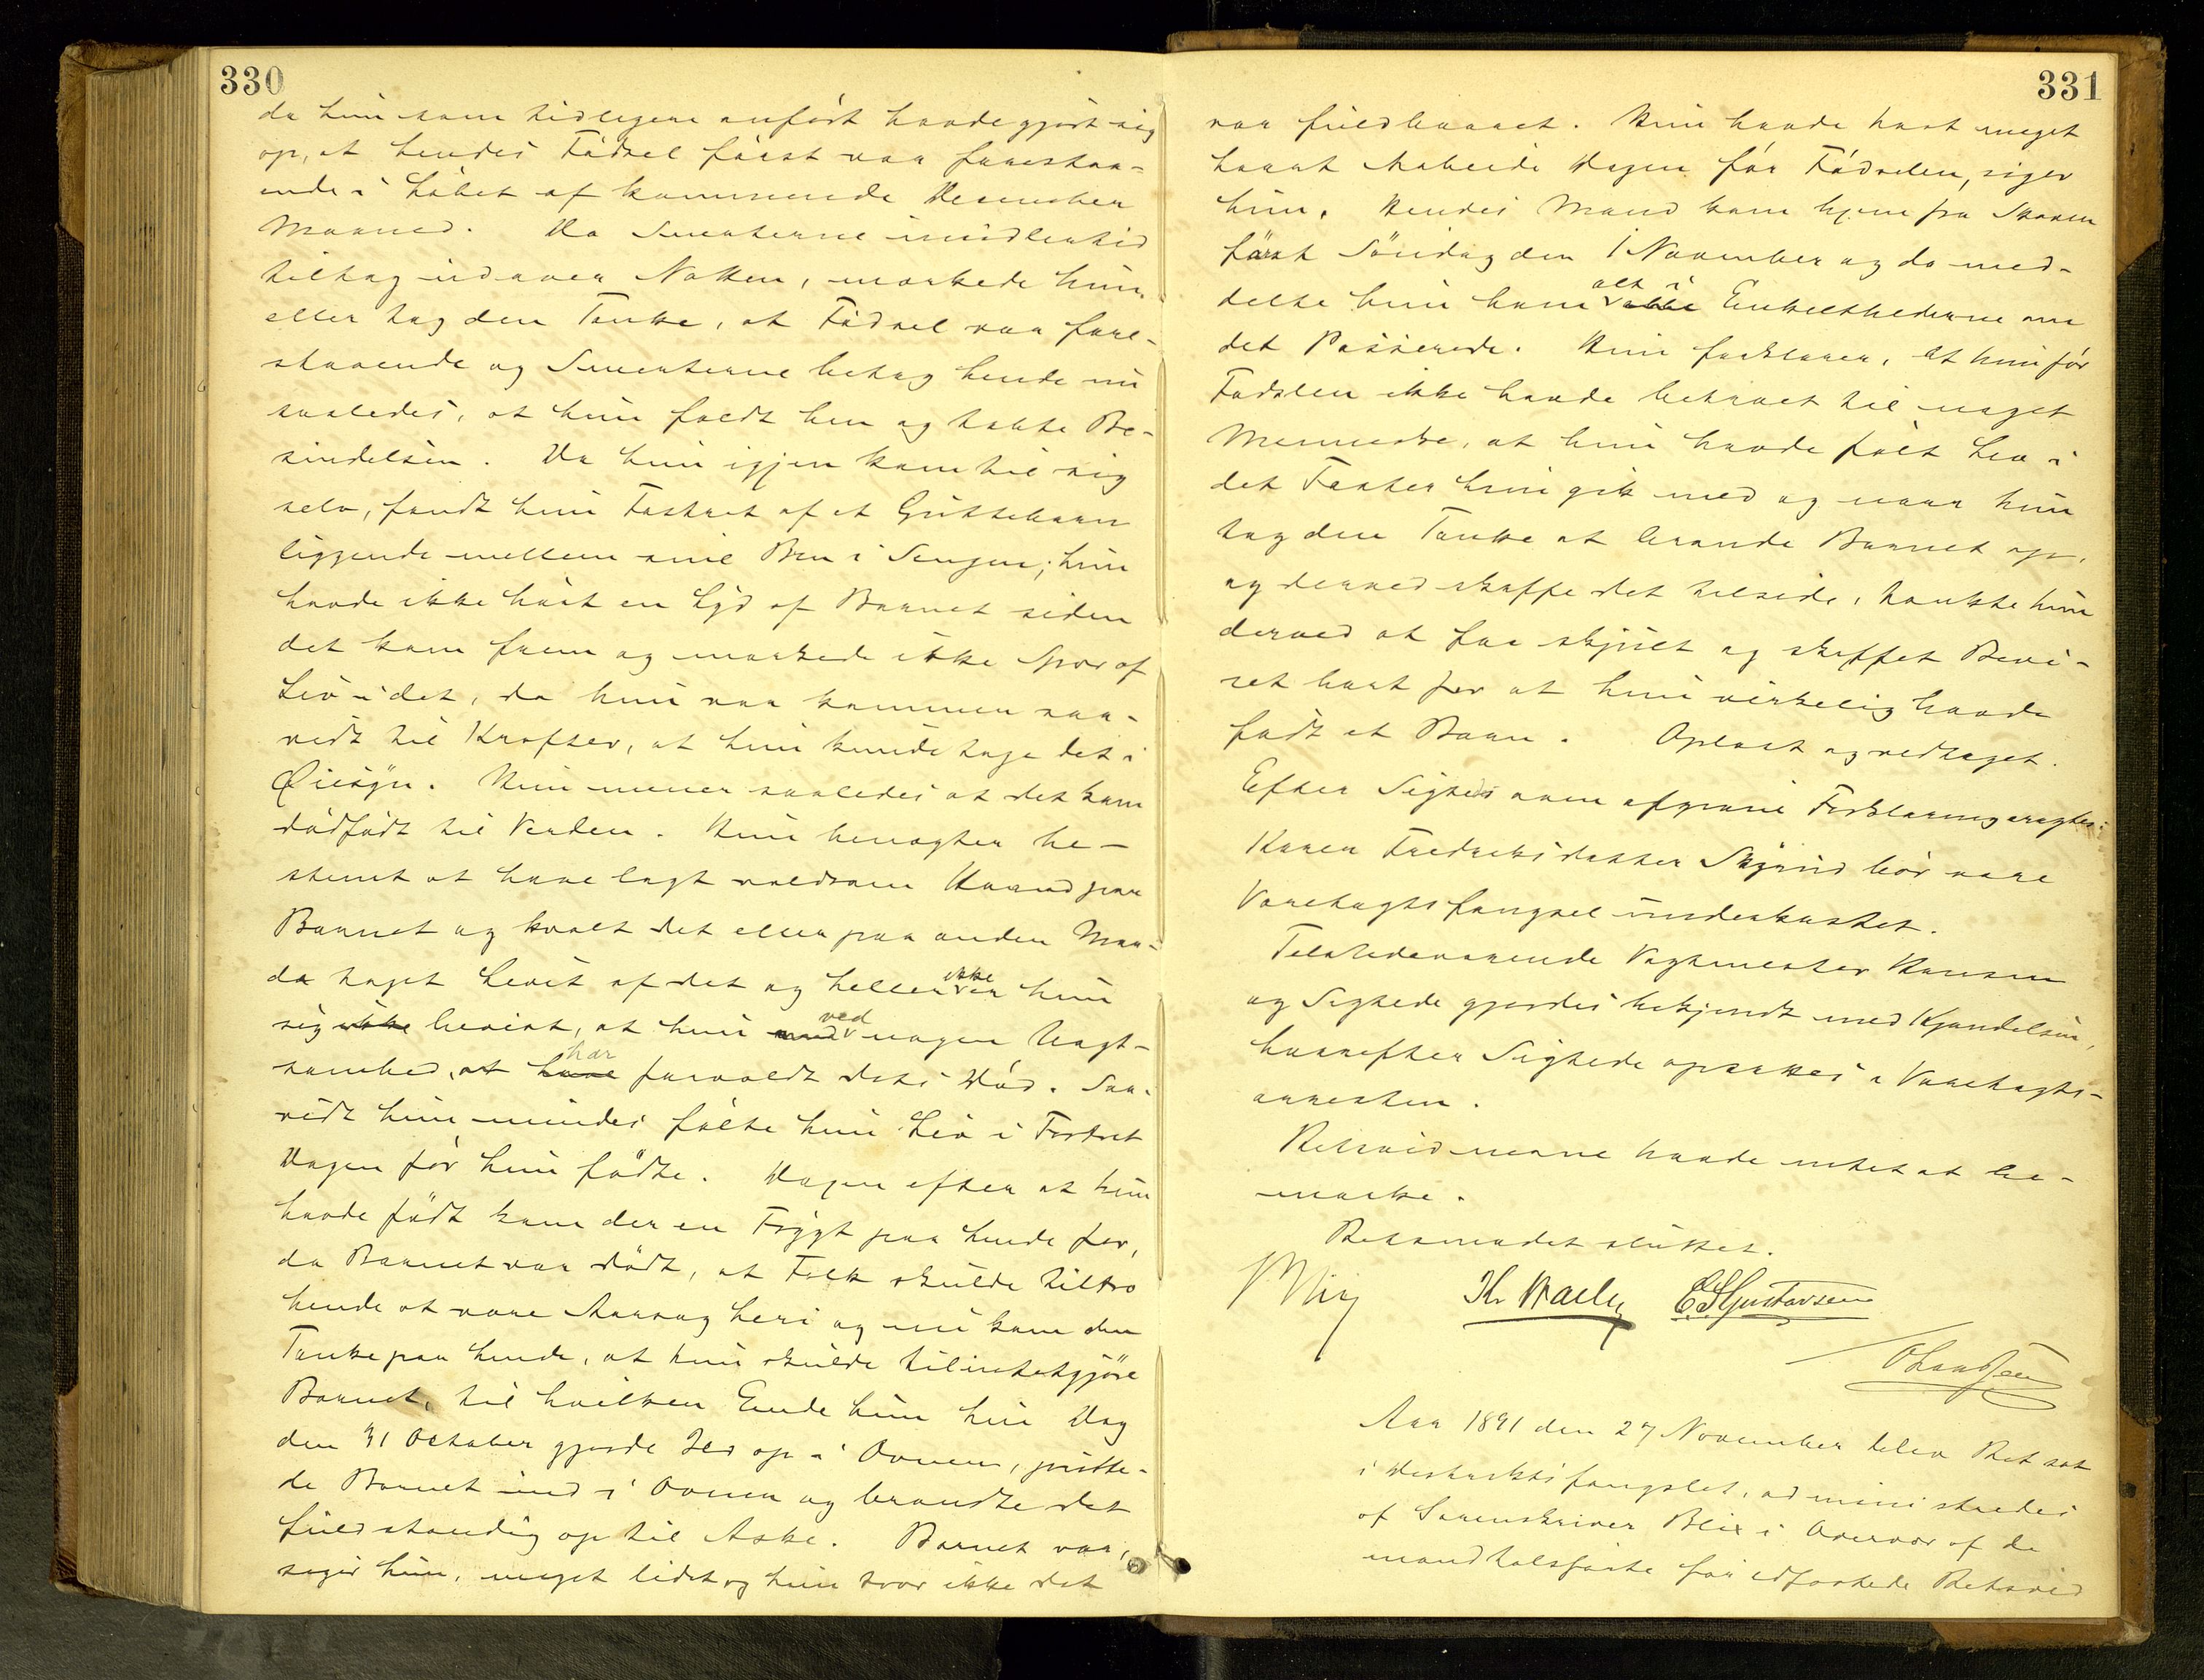 330
da hun som tidligere anført havde gjort sig
op, at hendes Fødsel først var forestaa-
ende i Løbet af kommende December
Maaned. Da Smerterne imidlertid
tiltog udover Natten, mærkede hun
eller tog den Tanke, at Fødsel var fore-
staaende og Smerterne betog hende nu
saaledes, at hun faldt hen og tabte Be-
sindelsen. Da hun igjen kom til sig
selv, fandt hun Fostret af et Guttebarn
liggende mellem sine Ben i Sengen; hun
havde ikke hørt en Lyd af Barnet siden
det kom frem og mærkede ikke Spor af
Liv i det, da hun var kommen saa-
vidt til Kræfter, at hun kunde tage det i
Øiesyn. Hun mener saaledes at det kom
dødfødt til Verden. Hun benægter be-
stemt at have lagt voldsom Haand paa
Barnet og kvalt det eller paa anden Maa-
de taget Livet af det og heller ikke er hun
sig ikke bevist, at hun med ved nogen Uagt-
somhed, at have har forvoldt dets Død. Saa-
vidt hun mindes følte hun Liv i Fostret
Dagen før hun fødte. Dagen efter at hun
havde født kom der en Frygt paa hende for,
da Barnet var dødt, at Folk skulde tiltro
hende at være Aarsag heri og nu kom den
Tanke paa hende, at hun skulde tilintetgjøre
Barnet, til hvilken Ende hun hin Dag
den 31 October gjorde Ild op i Ovnen, putte-
de Barnet ind i Ovnen og brændte det
fuldstændig op til Aske. Barnet var,
siger hun, meget lidet og hun tror ikke det
331
var fuldbaaret. Hun havde havt meget
haardt Arbeide Dagen før Fødselen, siger
hun. Hendes Mand kom hjem fra Skoven
først Søndag den 1 November og da med-
delte hun ham alt i Enkelthederne om
det Passerede. Hun forklarer, at hun før
Fødslen ikke havde betroet til noget
Menneske, at hun havde følt Liv i
det Foster hun gik med og naar hun
tog den Tanke at brænde Barnet op,
og derved skaffe det tilside, tænkte hun
derved at faa skjult og skaffet Bevi-
set bort for at hun virkelig havde
født et Barn. Oplæst og vedtaget.
Efter Sigtedes saaledes afgivne Forklaring eragtes:
Karen Fredriksdatter bør være
Varetægtsfængsel underkastet.
Tilstedeværende Vagtmester Hansen
og Sigtede gjordes bekjendt med Kjendelsen,
hvorefter Sigtede opsattes i Varetægts-
arresten.
Retsvidnerne havde intet at be-
mærke.
Retsmødet sluttet.
Blix K. Bræly E. S. Gustavsen
Aar 1891 den 27 November blev Ret sat
i Distriktsfængslet, administredes
af Sorenskriver Blix i Overvær af de
mandtalsførte før edfæstede Retsvid